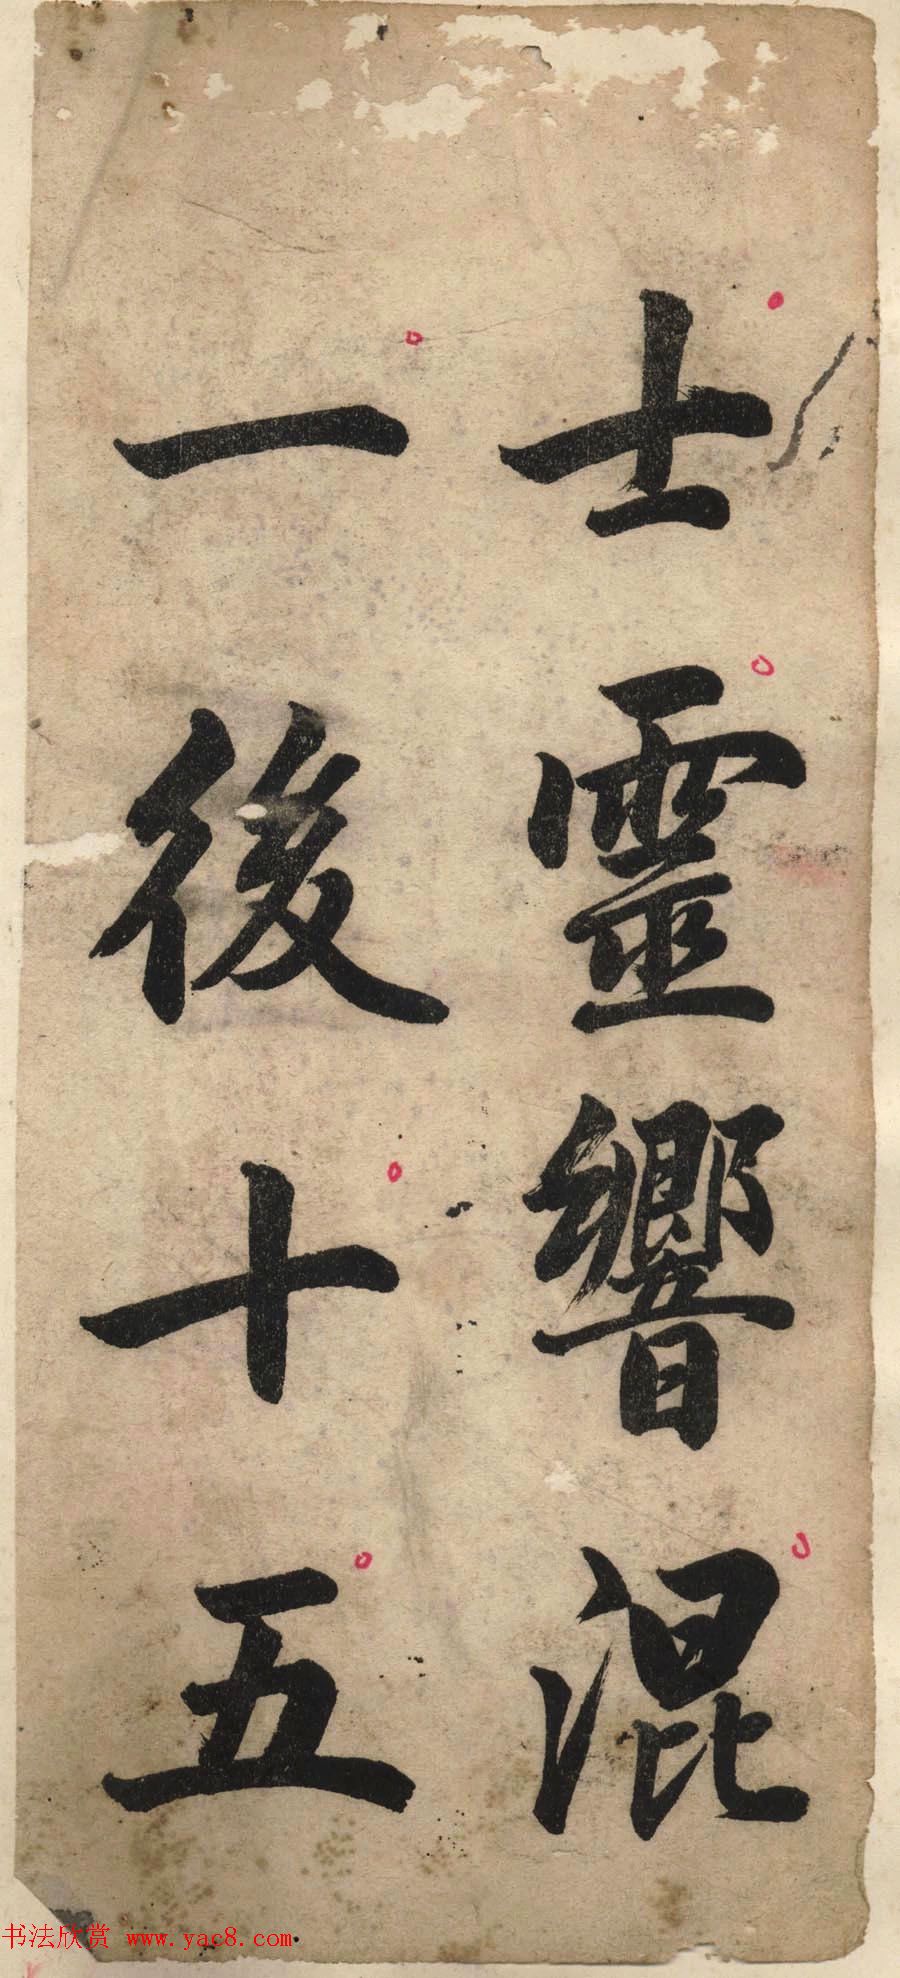 士靈響混
一後十五
书法欣赏 www.yac8.com